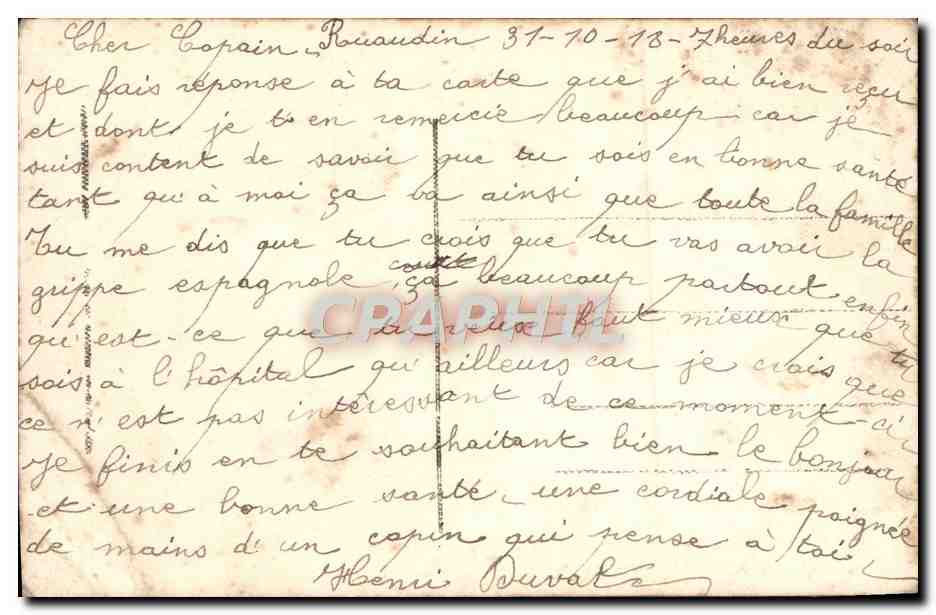 Cher Copain, Ruaudin 31-10-18-7heures du soir
Je fais réponse à ta carte que j'ai bien reçu
et dont je t'en remercie beaucoup car je
suis content de savoir que tu sois en bonne santé
tant qu'à moi ça va ainsi que toute la famille
Tu me dis que tu crois que tu vas avoir la
grippe espagnole ça courte beaucoup partout enfin
CPAPHIL.COM
qu'est-ce que tu veux faut mieux que tu
sois à l'hôpital qu'ailleurs car je crois que
ce n'est pas intéressant de ce moment-ci
Je finis en te souhaitant bien le bonjour
et une bonne santé, une cordiale poignée
de mains d'un copin qui pense à toi
Henri Duval